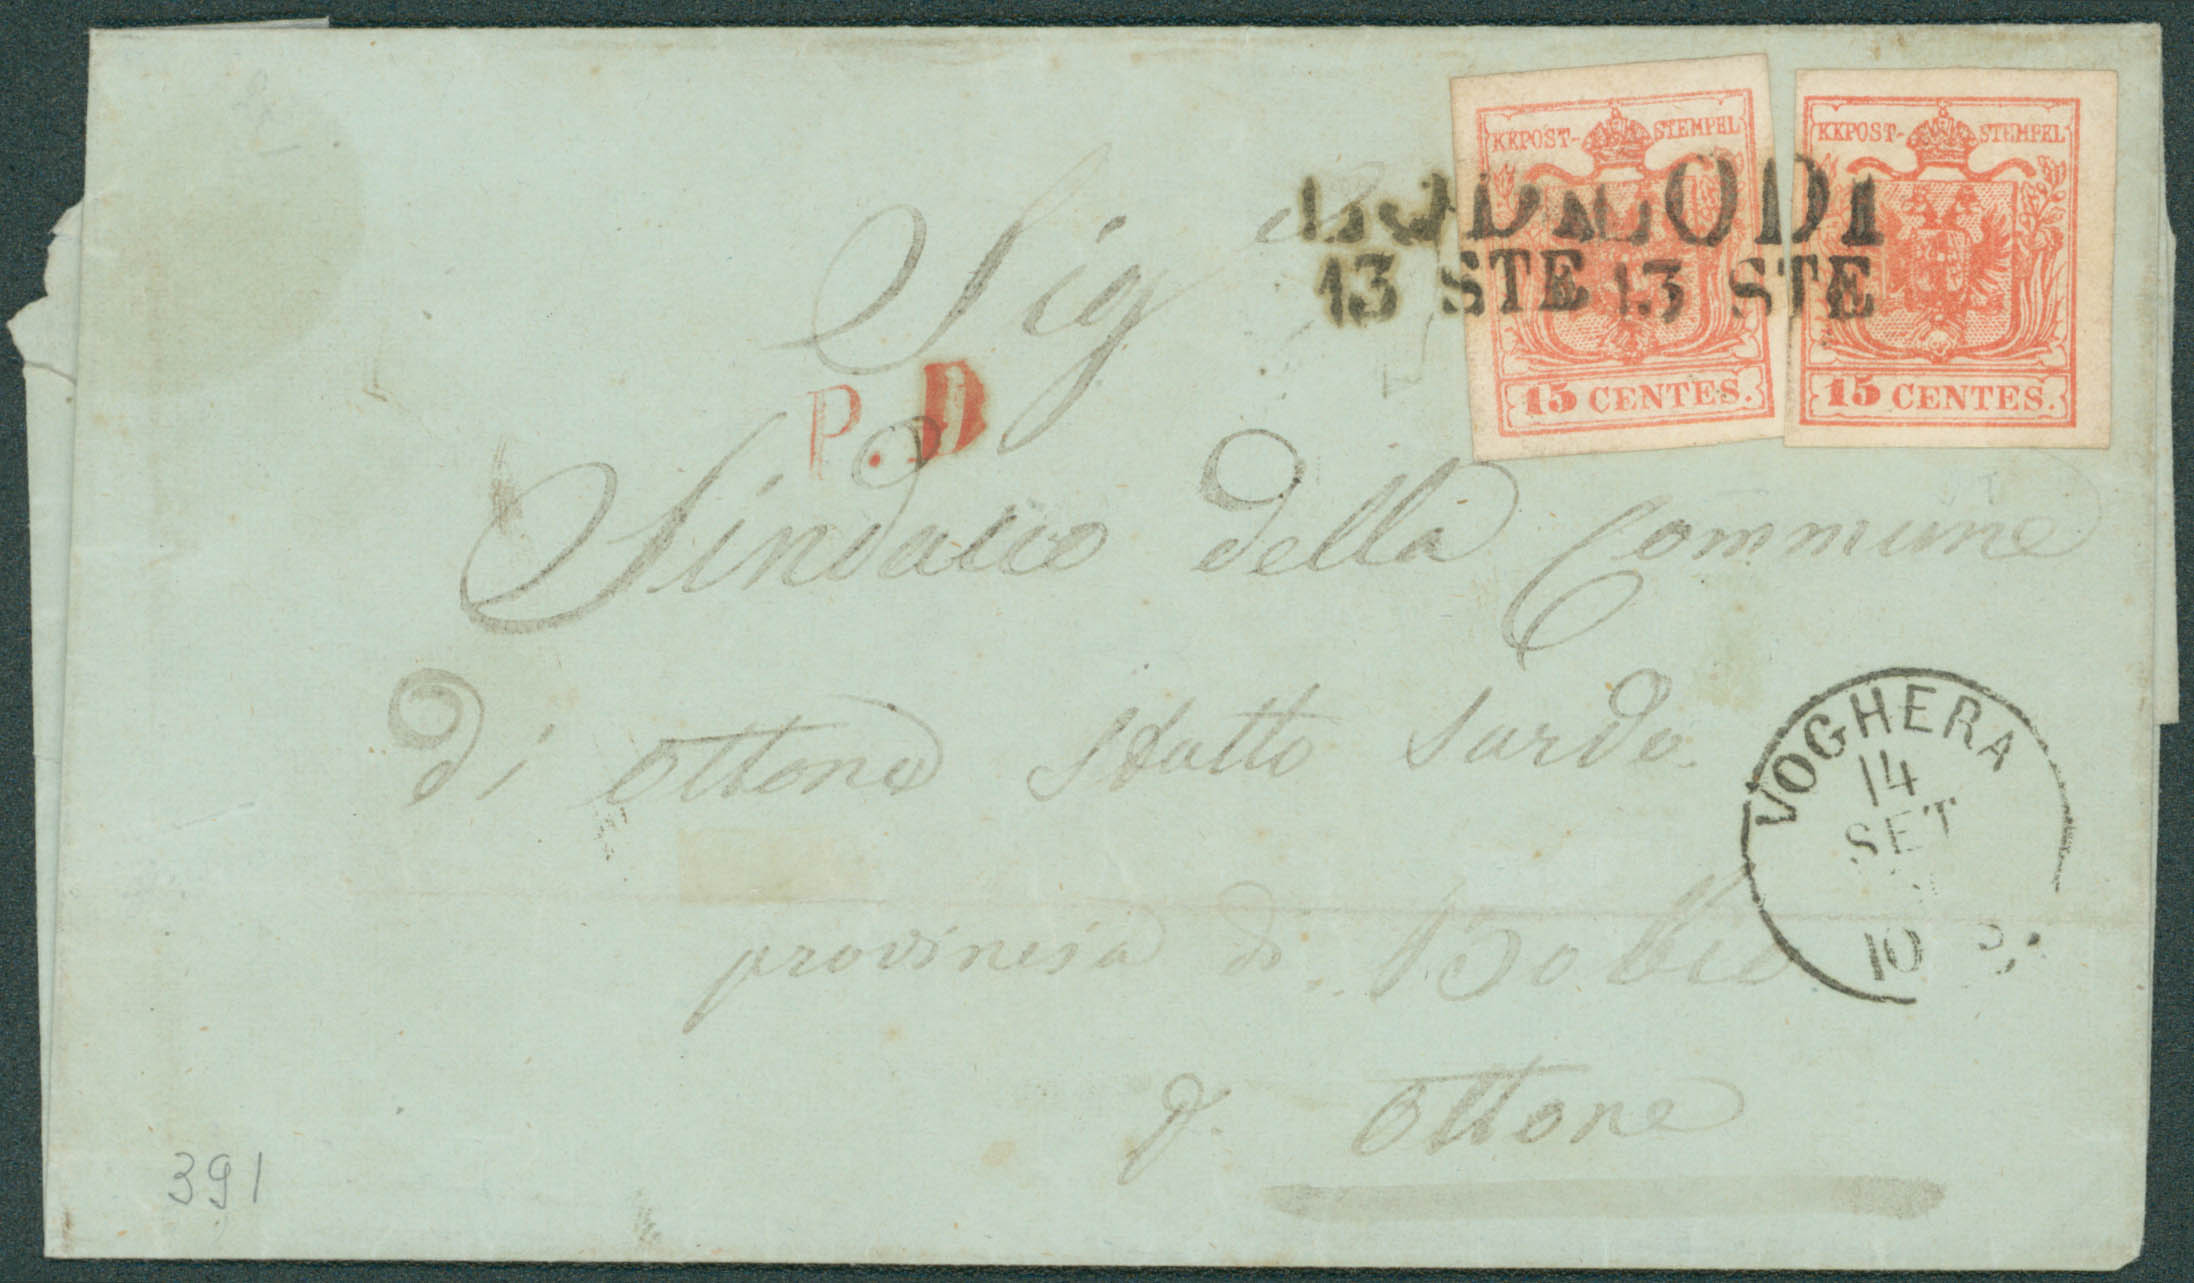 KKPOST-STEMPEL KKPOST-STEMPEL
LODI LODI
13 STE 13 STE
15 CENTES. 15 CENTES.
Sig
P.D
Sindaco della Commune
di Ottone Statto Sardo
VOGHERA
14
SET
10
provincia di Bobbio
Ottone
391